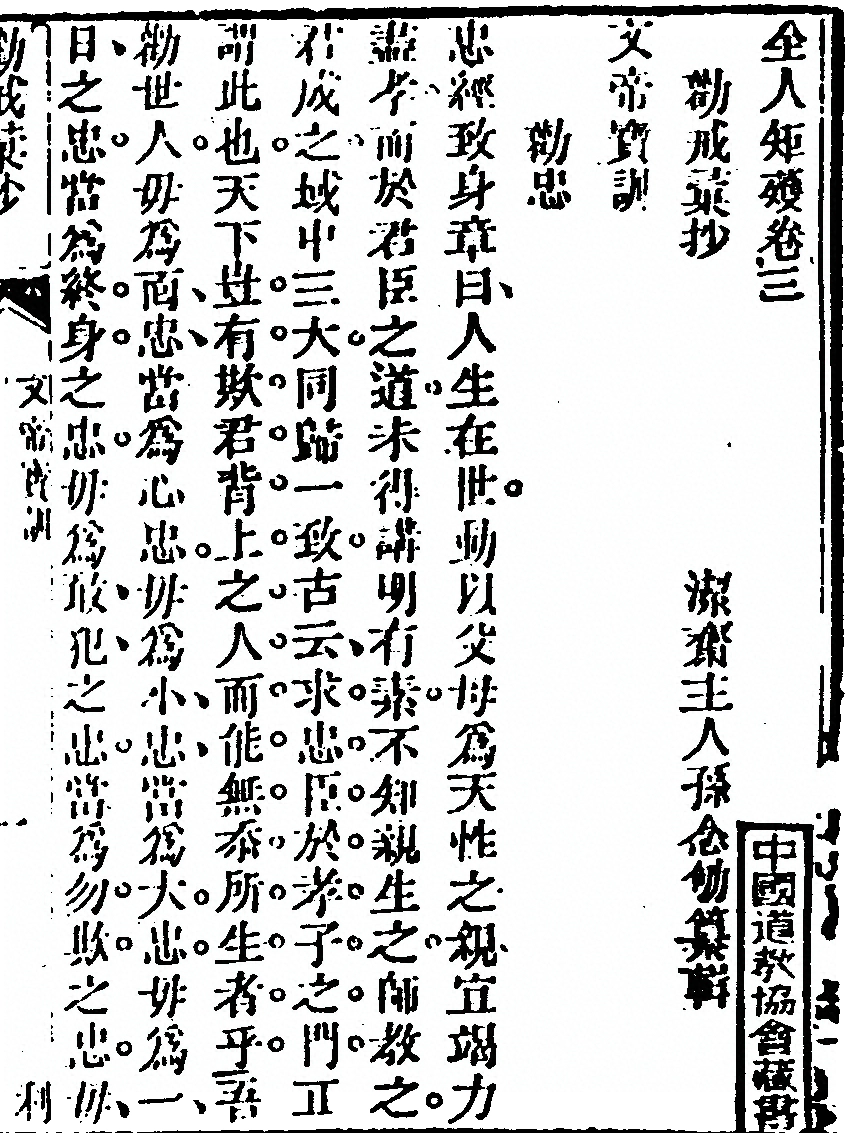 全人矩矱卷三
勸戒彚抄
潔齋主人孫念劬纂輯
文帝寶訓
勸忠
忠經致身章曰人生在世動以父母爲天性之親宜竭力
盡孝而於君臣之道未得講明有素不知親生之師教之
君成之域中三大同歸一致古云求忠臣於孝子之門正
謂此也天下豈有欺君背上之人而能無忝所生者乎吾
勸世人毋爲面忠當爲心忠毋爲小忠當爲大忠毋爲一
日之忠當爲終身之忠毋爲敢犯之忠當爲勿欺之忠毋
勸戒彚抄
文帝寶訓
一
利
中國道教協會藏書